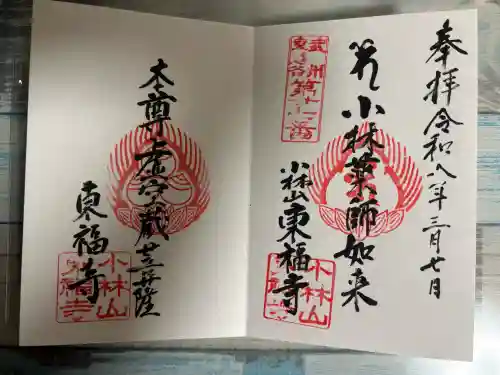 奉拝 令和八年三月七日
小林薬師如来
小林山 東福寺
小林山
東福寺
本尊虚空蔵菩薩
東福寺
小林山
東福寺